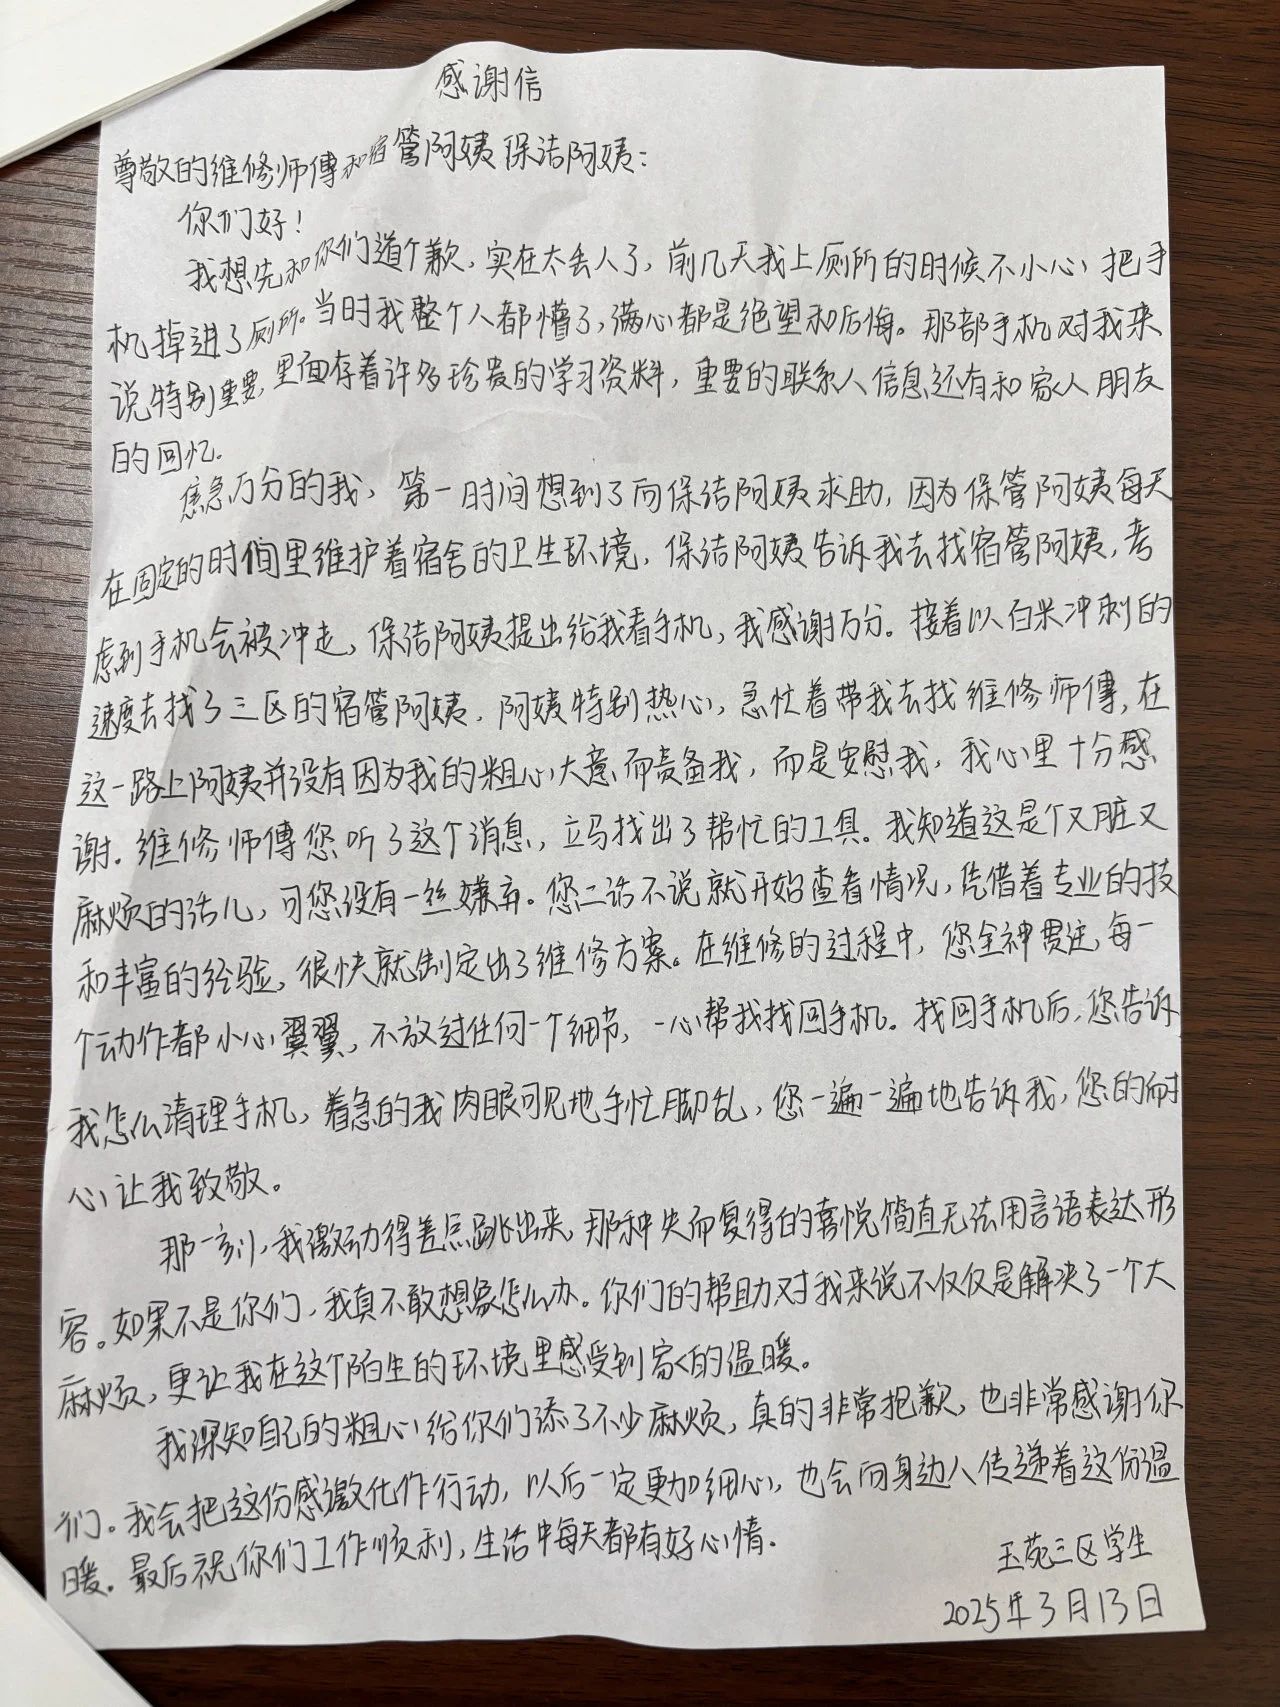 感谢信
尊敬的维修师傅和宿管阿姨保洁阿姨：
你们好！
我想先和你们道个歉，实在太丢人了，前几天我上厕所的时候不小心把手
机掉进了厕所。当时我整个人都懵了，满心都是绝望和后悔。那部手机对我来
说特别重要，里面存着许多珍贵的学习资料，重要的联系人信息还有和家人朋友
的回忆。
焦急万分的我，第一时间想到了向保洁阿姨求助，因为保管阿姨每天
在固定的时间里维护着宿舍的卫生环境，保洁阿姨告诉我去找宿管阿姨，考
虑到手机会被冲走，保洁阿姨提出给我看手机，我感谢万分。接着以百米冲刺的
速度去找了三区的宿管阿姨，阿姨特别热心，急忙着带我去找维修师傅，在
这一路上阿姨并没有因为我的粗心大意而责备我，而是安慰我，我心里十分感
谢。维修师傅您听了这个消息，立马找出了帮忙的工具。我知道这是个又脏又
麻烦的活儿，可您没有一丝嫌弃。您二话不说就开始查看情况，凭借着专业的技
和丰富的经验，很快就制定出了维修方案。在维修的过程中，您全神贯注，每一
个动作都小心翼翼，不放过任何一个细节，一心帮我找回手机。找回手机后，您告诉
我怎么清理手机，着急的我肉眼可见地手忙脚乱，您一遍一遍地告诉我，您的耐
心让我致敬。
那一刻，我激动得差点跳出来，那种失而复得的喜悦简直无法用言语表达形
容。如果不是你们，我真不敢想象怎么办。你们的帮助对我来说不仅仅是解决了一个大
麻烦，更让我在这个陌生的环境里感受到家的温暖。
我深知自己的粗心给你们添了不少麻烦，真的非常抱歉，也非常感谢你
们。我会把这份感激化作行动，以后一定更加细心，也会向身边人传递着这份温
暖。最后祝你们工作顺利，生活中每天都有好心情。
玉苑三区学生
2025年3月13日